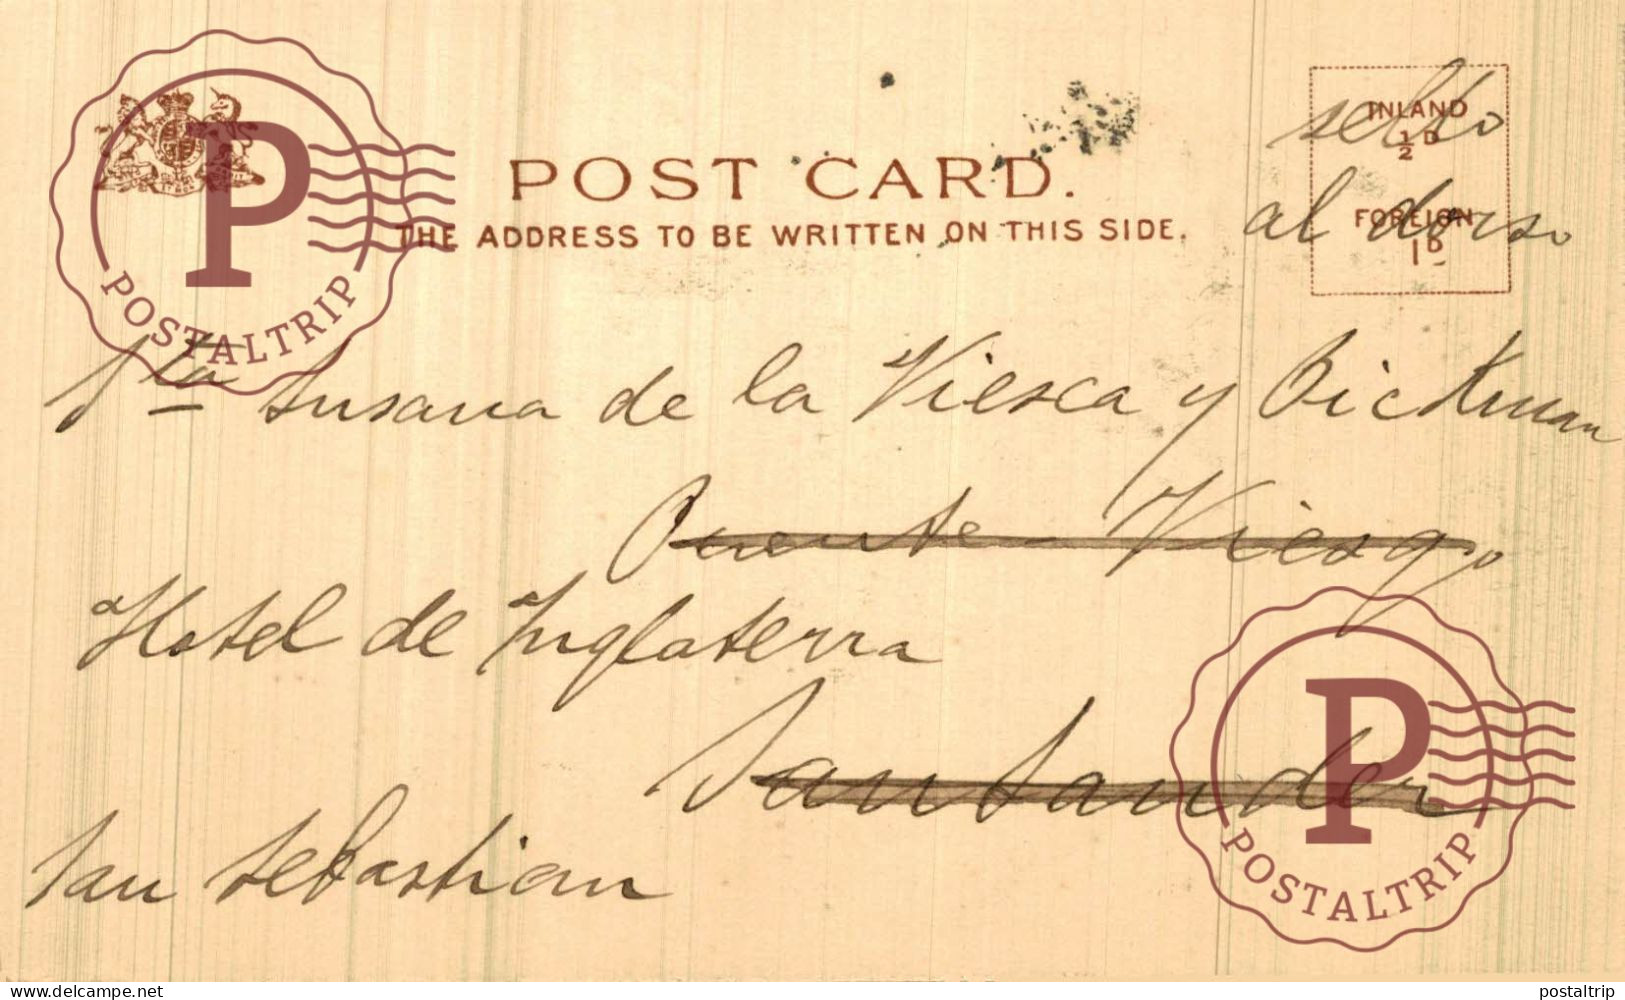 POST CARD.
THE ADDRESS TO BE WRITTEN ON THIS SIDE.
INLAND
½D
FOREIGN
1D.
sello
al dorso
Sta Susana de la Viesca y Bickman
Puente Viesgo
Hotel de Inglaterra
Santander
San Sebastian
P
POSTALTRIP
P
POSTALTRIP
delcampe.net
postaltrip